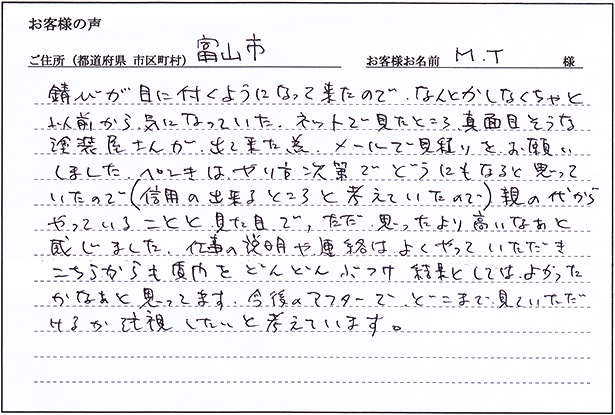 お客様の声
ご住所（都道府県 市区町村） 富山市 お客様お名前 M.T 様
錆びが目に付くようになって来たので、なんとかしなくちゃと
以前から気になっていた。ネットで見たところ真面目そうな
塗装屋さんが出て来た為、メールで見積りをお願い
しました。ペンキはやり方次第でどうにもなると思って
いたので（信用の出来るところと考えていたので）親の代から
やっていることと見た目で、ただ思ったより高いなあと
感じました。仕事の説明や連絡はよくやっていただき
こちらからも質問をどんどんぶつけ結果としてはよかった
かなあと思ってます。今後のアフターで、どこまで見ていただ
けるか注視したいと考えています。